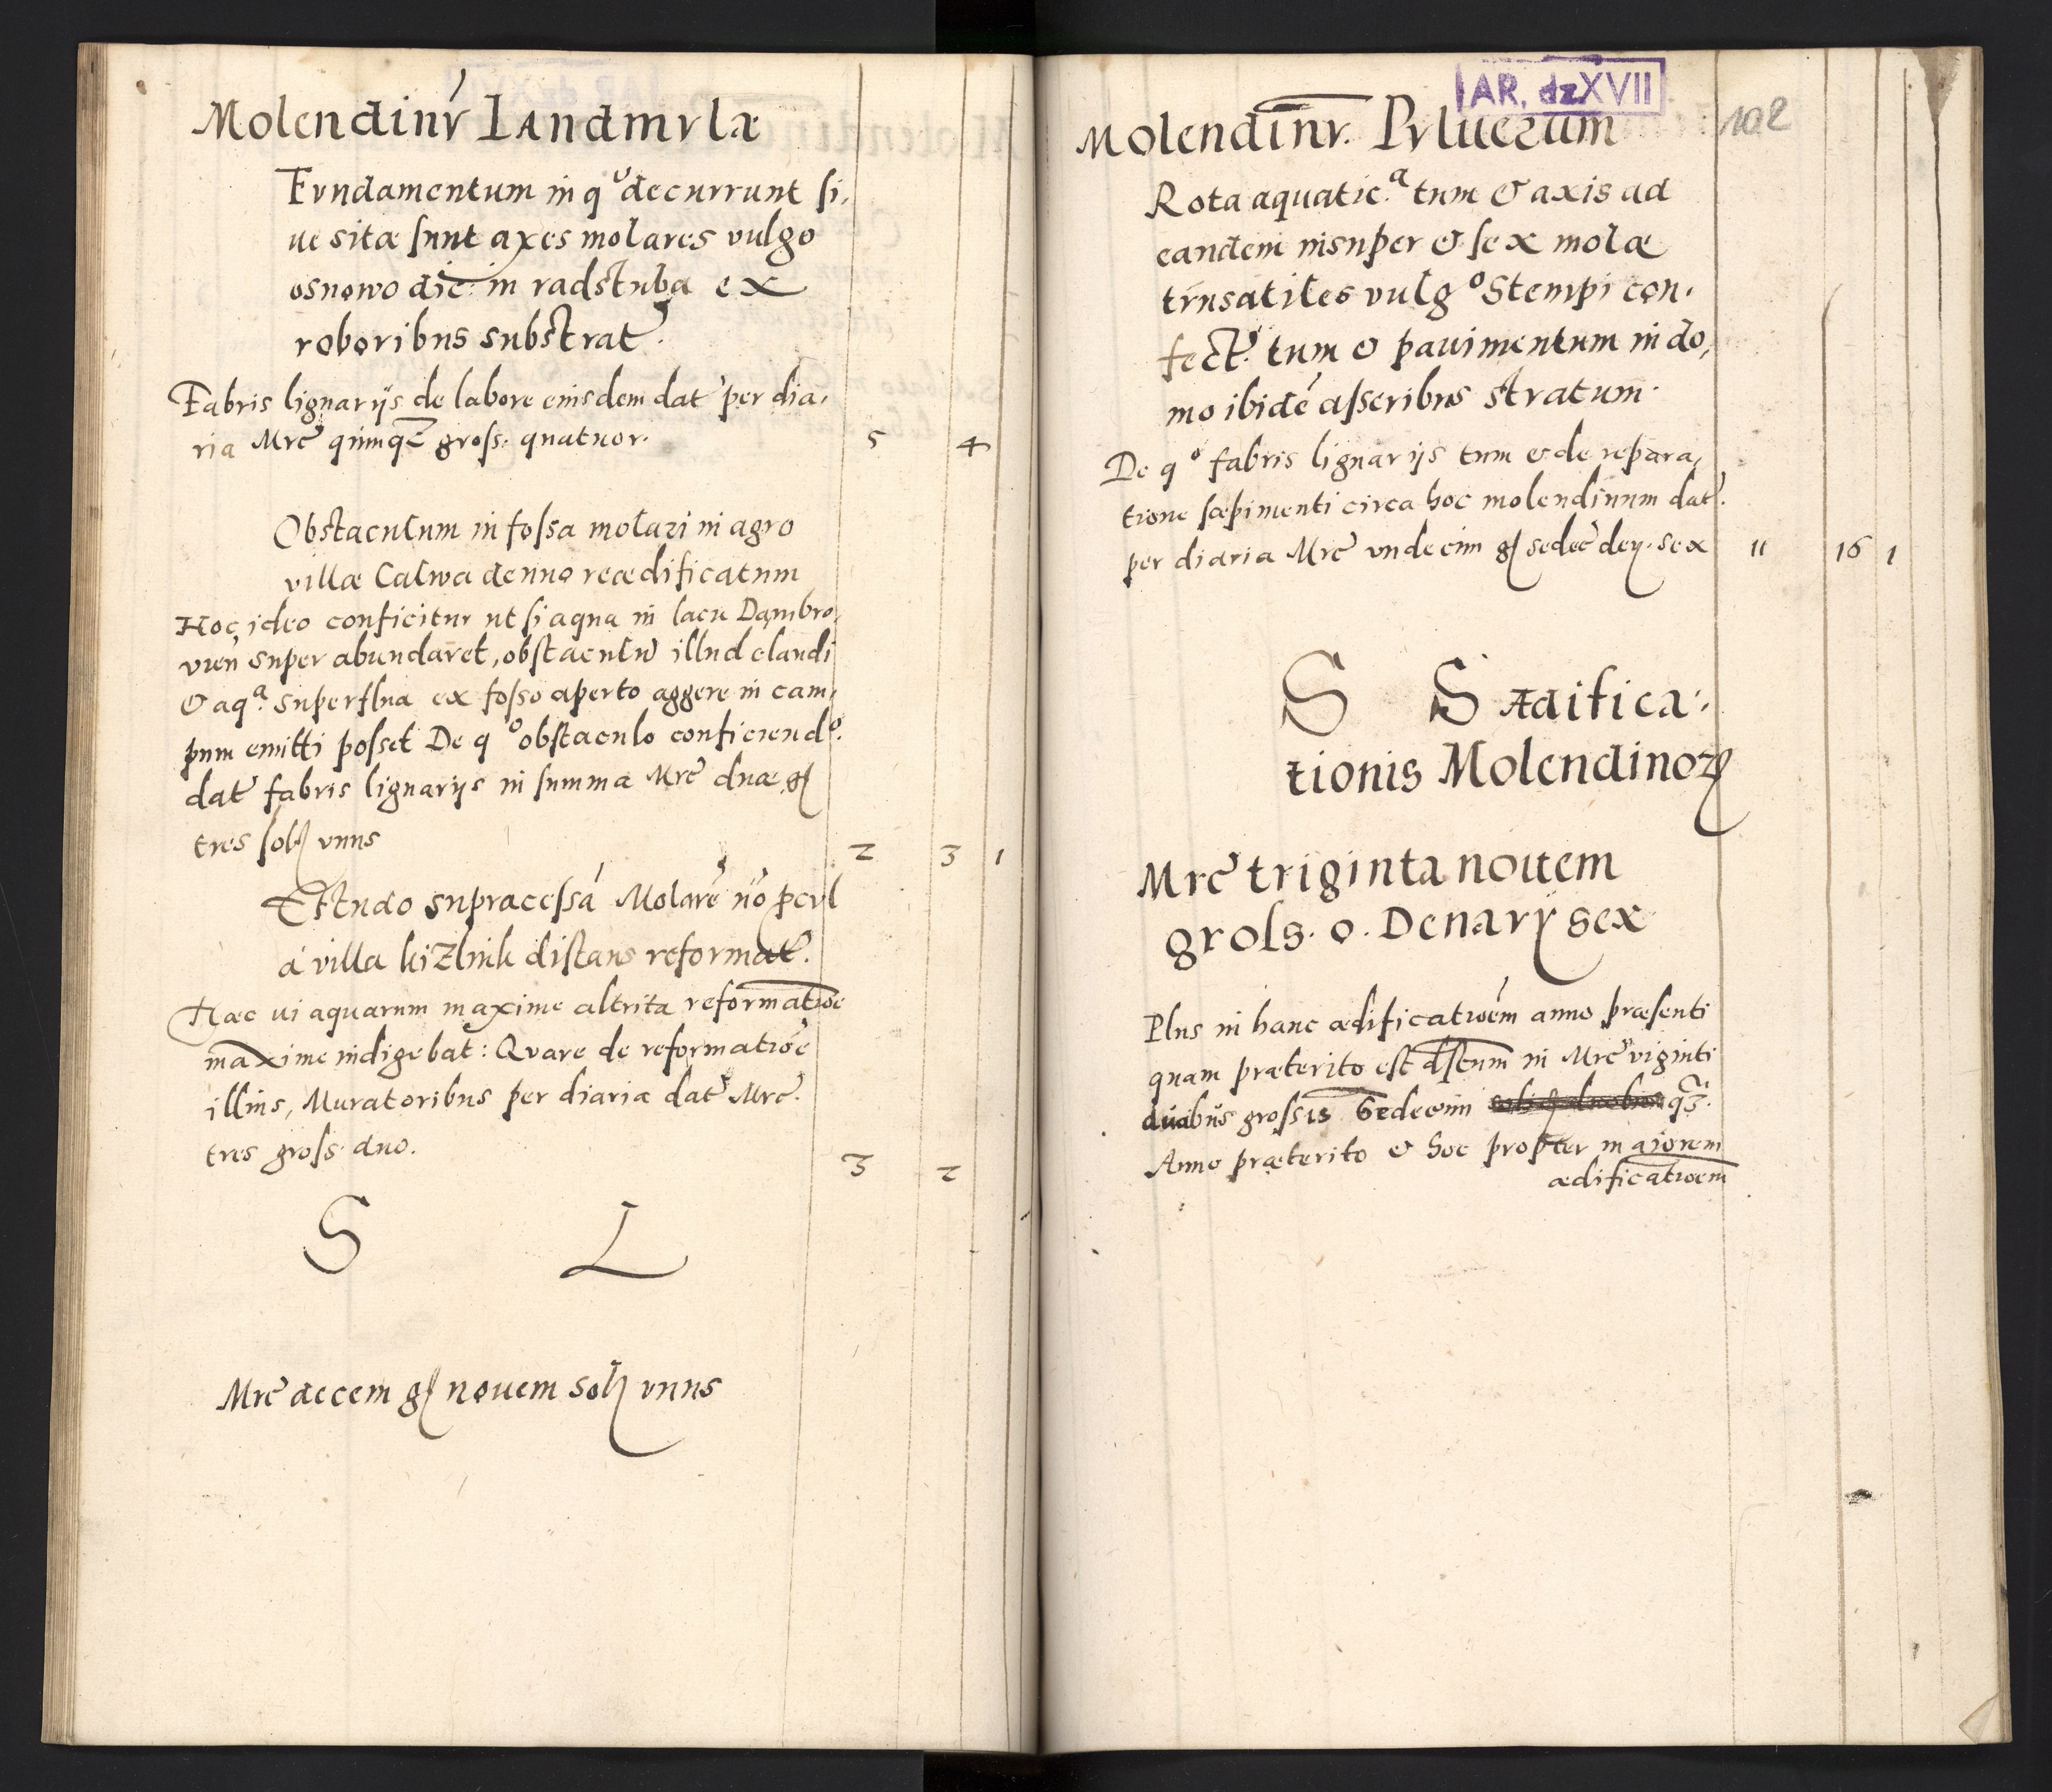 Molendinū Landmvlæ
Fvndamentum in qº decurrunt si,
ue sitæ sunt axes molares vulgo
osnowo dic: in radstuba ex
roboribus substrat.
Fabris lignarijs de labore eiusdem dat per dia,
ria Mrc quinq gross. quatuor. 5 4
Obstaculum in fossa molari in agro
villæ Calwa denuo reædificatum
Hoc ideo conficitur ut si aqua in lacu Dąmbro,
vien super abundaret, obstaculū illud claudi
& aqª superflua ex fosso aperto aggere in cam,
pum emitti posset De qº obstaculo conficiendº.
dat fabris lignarijs in summa Mrc duæ gs
tres sol unus 2 3 1
Testudo supra
á villa kizlink distans reformat.
Hæc ui aquarum maxime altrita reformatioe
maxime indigebat: Qvare de reformatioe
illius, Muratoribus per diaria dat Mrc.
tres gross. duo. 3 2
S L
Mrc decem gs nouem sol unus
AR. dz XVII
Molendinū. Pvluerum 102
Rota aquaticª tum & axis ad
eandem insuper & sex molæ
trusatiles vulgº Stempi con,
fect. tum & pauimentum in do,
mo ibidē asseribus stratum.
De qº fabris lignarijs tum & de repara,
tione sæpimenti circa hoc molendinum dat.
per diaria Mrc undecim gs sedec den. sex 11 16 1
S S Ædifica:
tionis Molendinoꝝ
Mrc triginta nouem
gross. 0. Denarij sex
Plus in hanc ædificatioēm anno præsenti
quam præterito est in Mrc viginti
duabus grossis Sedecim qȝ.
Anno præterito & hoc propter maiorem
ædificatioem